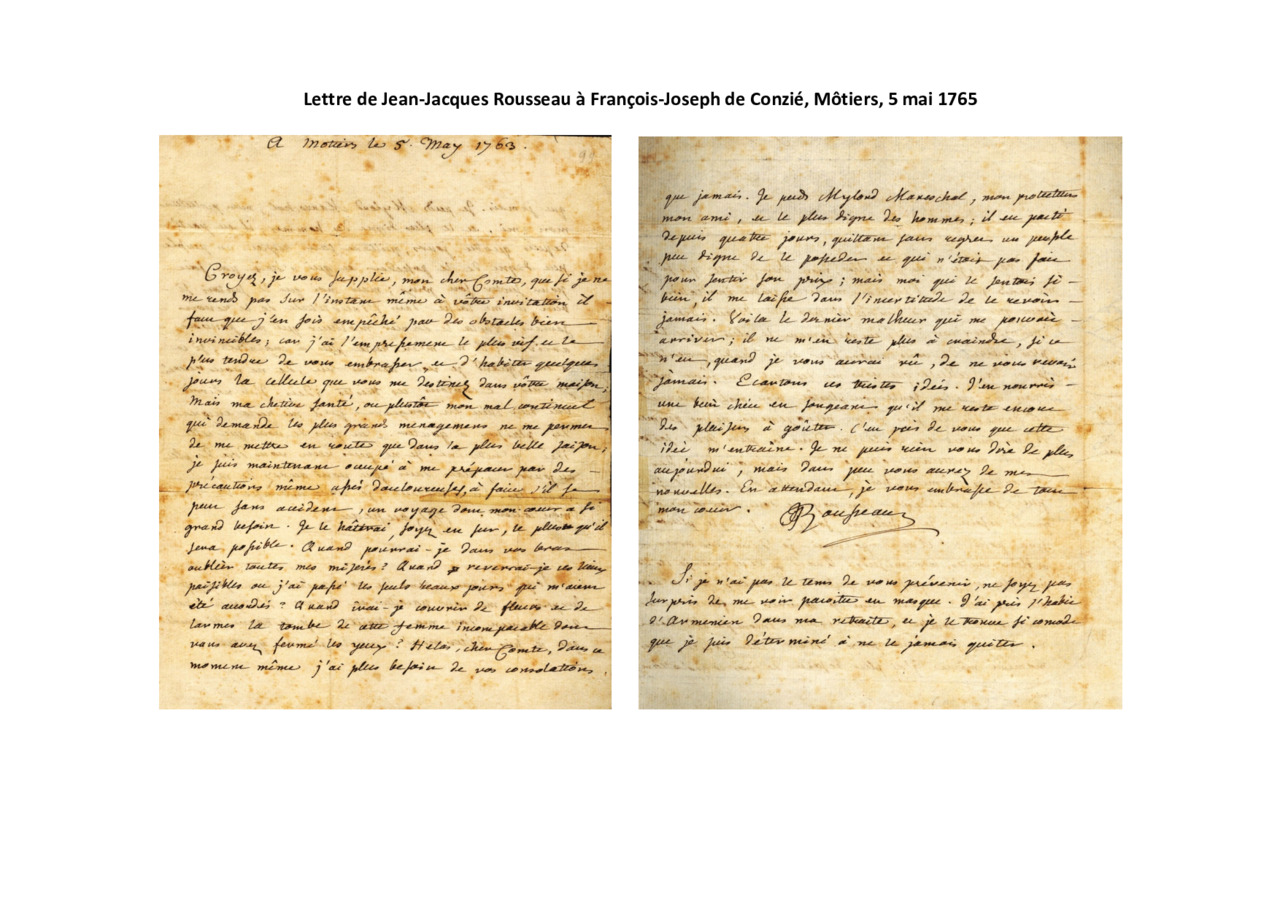 Lettre de Jean-Jacques Rousseau à François-Joseph de Conzié, Môtiers, 5 mai 1765
A Motiers le 5. May 1763.
Croyez, je vous supplie, mon cher Comte, que si je ne
me rends pas sur l'instant même à vôtre invitation il
faut que j'en sois empêché par des obstacles bien
invincibles; car j'ai l'empressement le plus vif et le
plus tendre de vous embrasser, et d'habiter quelques
jours la cellule que vous me destinez dans vôtre maison;
Mais ma chetive santé, ou plustôt mon mal continuel
qui demande les plus grands menagemens ne me permet
de me mettre en route que dans la plus belle saison;
je suis maintenant occupé à me préparer par des
précautions même assés douloureuses, à faire s'il se
peut sans accident, un voyage dont mon cœur a si
grand besoin. Je le hâterai, soyez en sur, le plus qu'il
sera possible. Quand pourrai-je dans vos bras
oublier toutes mes miséres? Quand reverrai-je ces lieux
paisibles où j'ai passé les seuls beaux jours qui m'aient
été accordés? Quand irai-je couvrir de fleurs et de
larmes la tombe de cette femme incomparable dont
vous avez fermé les yeux? Helas, cher Comte, dans ce
moment même j'ai plus besoin de vos consolations
que jamais. Je perds Mylord Mareschal, mon protecteur
mon ami, et le plus digne des hommes; il est parti
depuis quatre jours, quittant sans regret un peuple
peu digne de le posseder et qui n'étoit pas fait
pour sentir son prix; mais moi qui le sentois si
bien, il me laisse dans l'incertitude de le revoir
jamais. Voila le dernier malheur qui me pouvoit
arriver; il ne m'en reste plus à craindre, si ce
n'est, quand je vous aurai vû, de ne vous revoir
jamais. Ecartons ces tristes idées. J'en nourris
une bien chére en songeant qu'il me reste encore
des plaisirs à goûter. C'est près de vous que cette
idée m'entraine. Je ne puis rien vous dire de plus
aujourdui, mais dans peu vous aurez de mes
nouvelles. En attendant, je vous embrasse de tout
mon cœur. JJRousseau
Si je n'ai pas le tems de vous prévenir, ne soyez pas
surpris de me voir paroitre en masque. J'ai pris l'habit
d'Armenien dans ma retraite, et je le trouve si comode
que je suis déterminé à ne le jamais quiter.